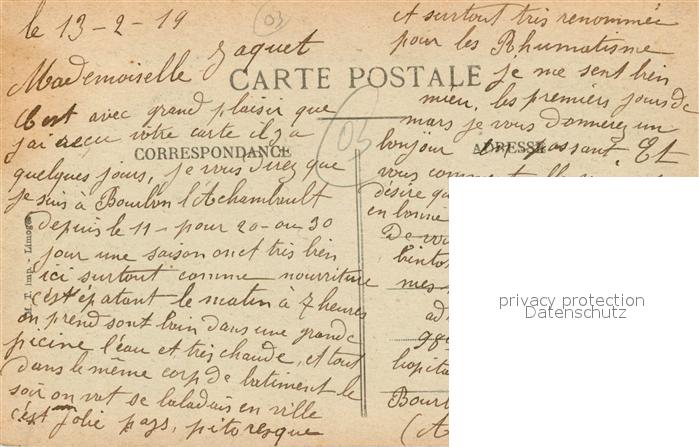 le 13-2-19
Mademoiselle Jaquet
CARTE POSTALE
C'est avec grand plaisir que
j'ai recu votre carte il y a
CORRESPONDANCE
quelques jours, je vous direz que
je suis à Bourbon l'Achambault
depuis le 11- pour 20- ou 30
jour une saison on et très bien
ici surtout comme nourriture
c'est épatant le matin à 7 heures
on prend sont bain dans une grande
picine l'eau et très chaude, et tout
dans le même corp de batiment le
soir on vat se baladais en ville
c'est jolie pays, pitoresque
et surtout très renommée
pour les Rhumatisme
je me sent bien
mieu, les premiers jours de
mars je vous donnerez un
bonjour en passant. Et
ADRESSE
vous
désire qu
en bonne
De vo
bintot
mes
ad
98e
hopita
Bourb
(A
03
03
T. imp. - Limoges
privacy protection
Datenschutz